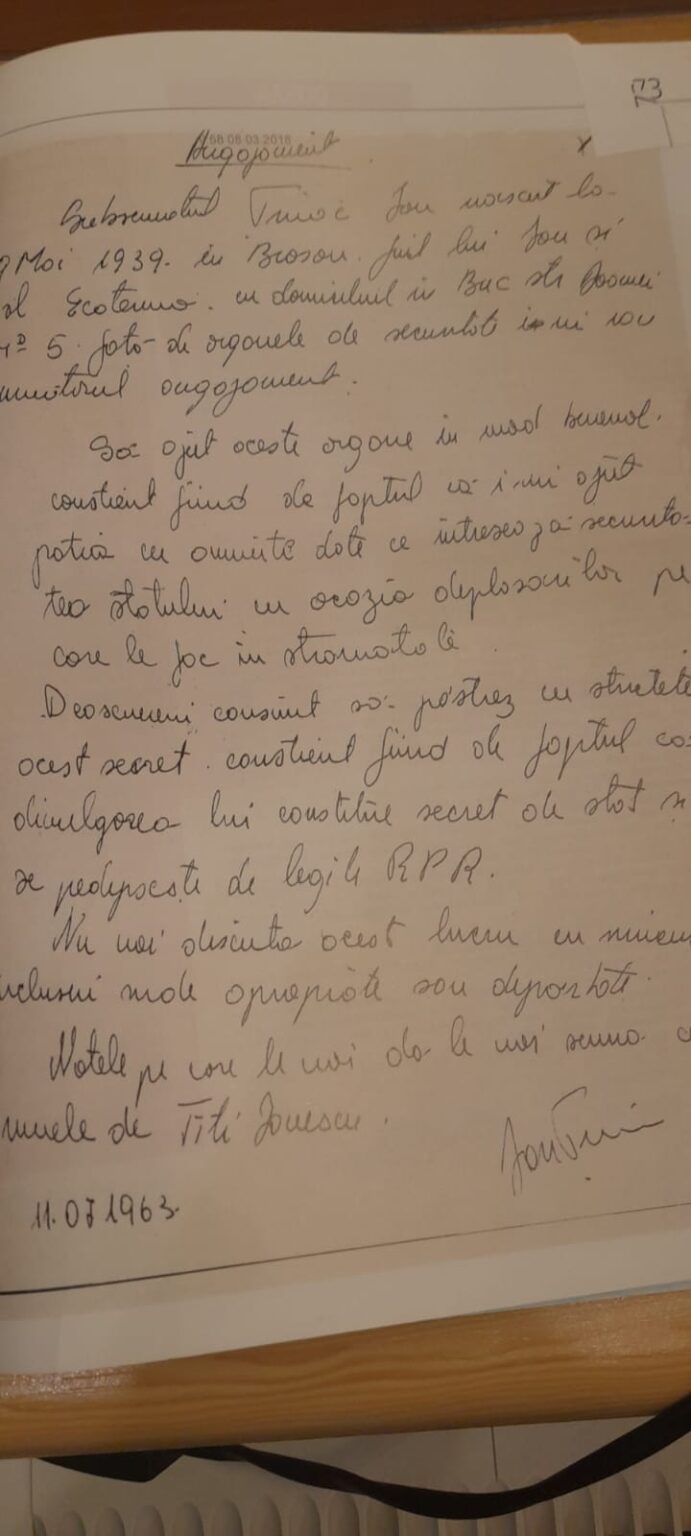 73
58 08 03 2018
Angajament
Subsemnatul Țiriac Ion născut la
9 Mai 1939. în Brașov. fiul lui Ion și
al Ecaterina. cu domiciliul în Buc str
nº 5. față de organele de securitate îmi iau
următorul angajament.
Să ajut aceste organe în mod benevol.
conștient fiind de faptul că îmi ajut
patria cu anumite date ce interesează securita-
tea statului cu ocazia deplasărilor pe
care le fac în străinătate.
Deasemeni consimt să păstrez cu strictețe
acest secret. conștient fiind de faptul că
divulgarea lui constitue secret de stat și
se pedepsește de legile RPR.
Nu voi discuta acest lucru cu nimeni
inclusiv rude apropiate sau depărtate.
Notele pe care le voi da le voi semna cu
numele de Titi Ionescu.
11.07 1963.